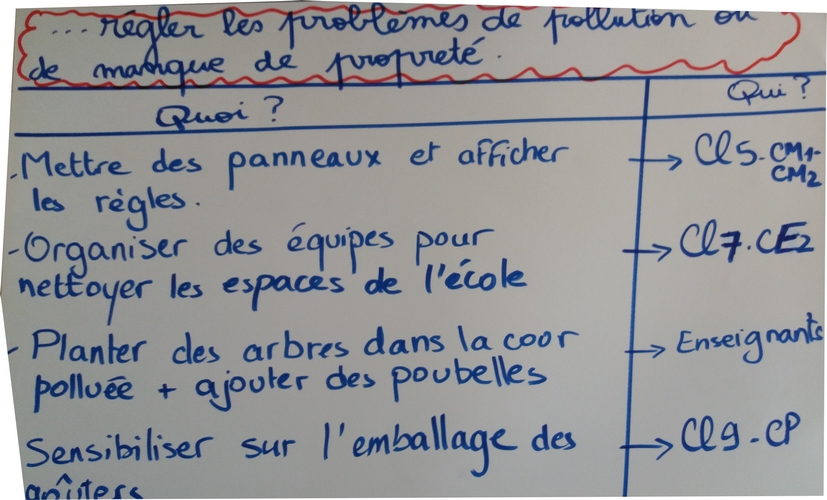 ... régler les problèmes de pollution ou
de manque de propreté.
Quoi ? Qui ?
- Mettre des panneaux et afficher → Cl 5 - CM1-
les règles. CM2
- Organiser des équipes pour → Cl 7. CE2
nettoyer les espaces de l'école
- Planter des arbres dans la coor → Enseignants
polluée + ajouter des poubelles
Sensibiliser sur l'emballage des → Cl 9 - CP
goûters